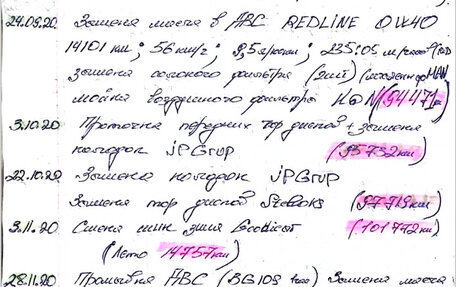 24.09.20 Замена масла в ДВС REDLINE 0W40
14101 км; 56 км/ч; 235:05 м/часов
замена масляного фильтра (2шт) MAN
мойка воздушного фильтра K&N (94471
3.10.20 Проточка передних тор дисков + замена
колодок JPGrup (95732км)
22.10.20 Замена колодок JPGrup
Замена тор дисков (97719км)
3.11.20 Смена шин зима (101772км)
(Лето 14757км)
28.11.20 Промывка ДВС (BG109 ) Замена масла